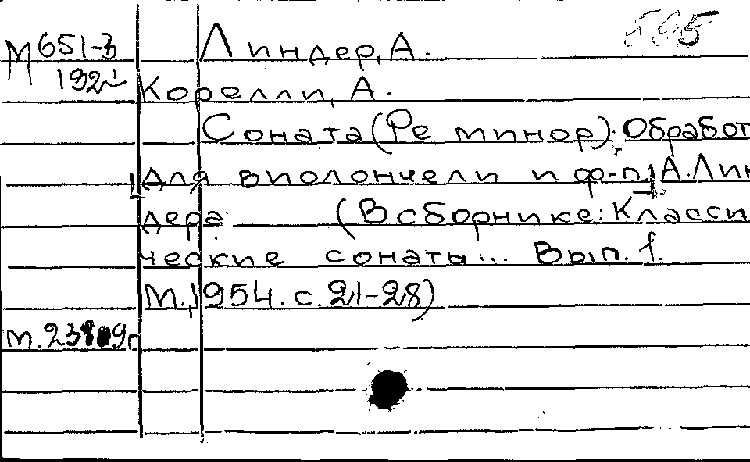 М651-3 Линдер, А. 595
192 Корелли, А.
Соната (Ре минор). Обработ
для виолончели и ф-п. А. Лин
дера (В сборнике: Класси
ческие сонаты... Вып. 1.
М., 1954. с. 21-28)